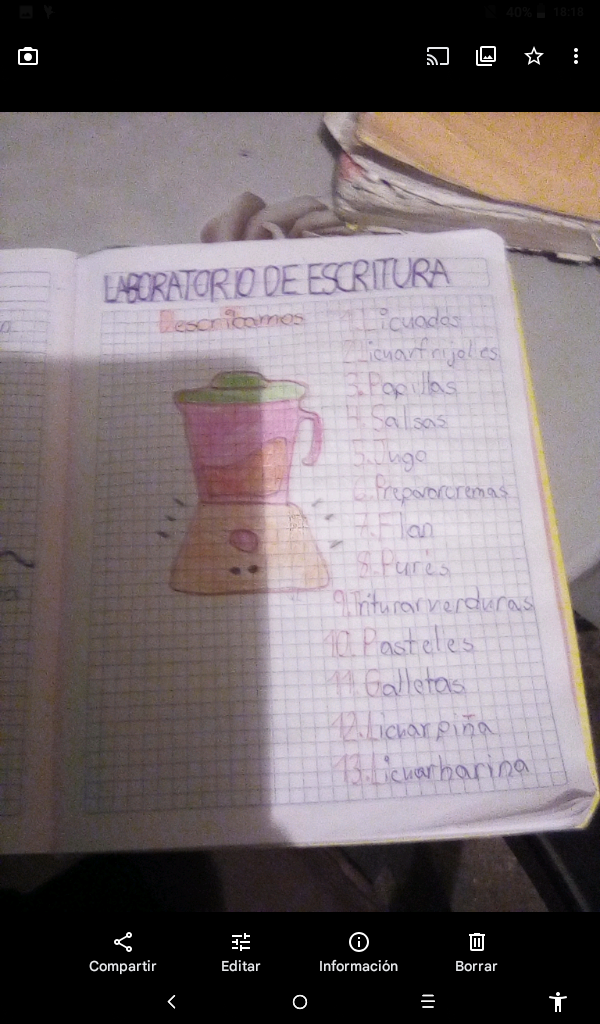 40% 18:18
LABORATORIO DE ESCRITURA
Describamos
1. Licuados
2. Licuar frijoles
3. Papillas
4. Salsas
5. Jugo
6. Preparar cremas
7. Flan
8. Purés
9. Triturar verduras
10. Pasteles
11. Galletas
12. Licuar piña
13. Licuar harina
Compartir Editar Información Borrar